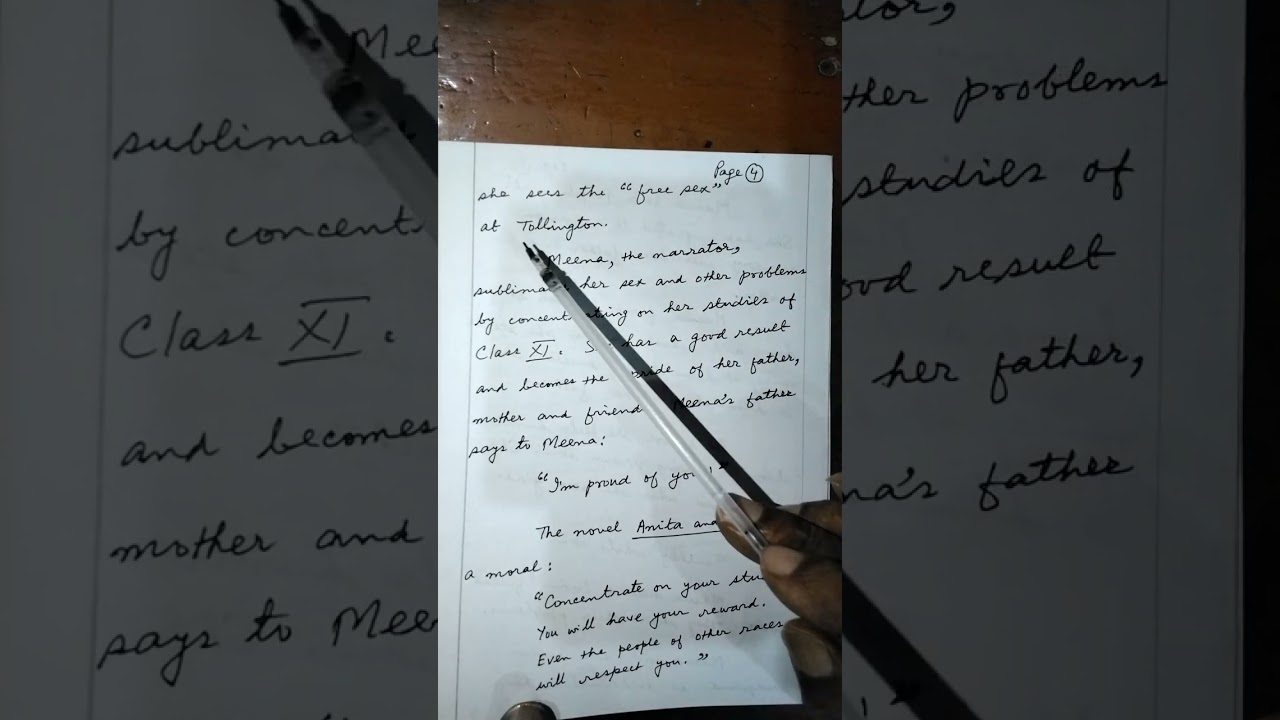 Page 4
she sees the "free sex"
at Tollington.
Meena, the narrator,
her sex and other problems
by on her studies of
Class XI. has a good result
and becomes the of her father,
mother and friend Meena's father
says to Meena:
"I'm proud of
The novel Anita and
a moral:
"Concentrate on your
You will have your reward.
Even the people of other races
will respect you."